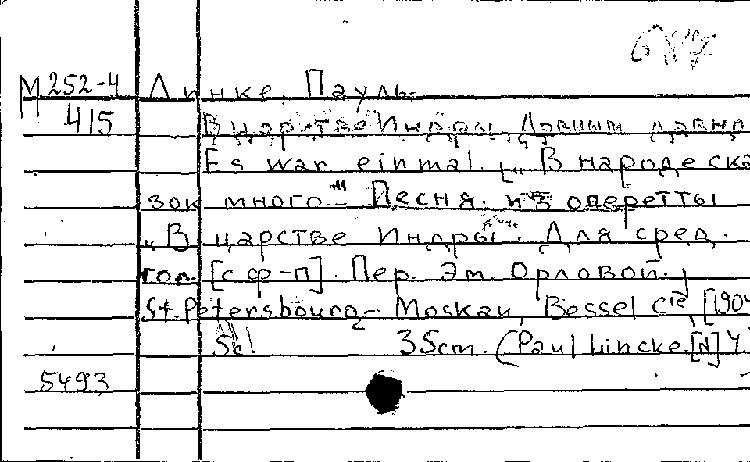 М 252-4 Линке, Пауль.
415 В царстве Индры. Давным давно
Es war einmal. [„В народе ска
зок много" Песня из оперетты
„В царстве Индры". Для сред.
гол. [с ф-п]. Пер. Эм. Орловой.
St. Petersbourg - Moskau, Bessel Cie, [190
5c. 35cm. (Paul Lincke. [N] 4
5493